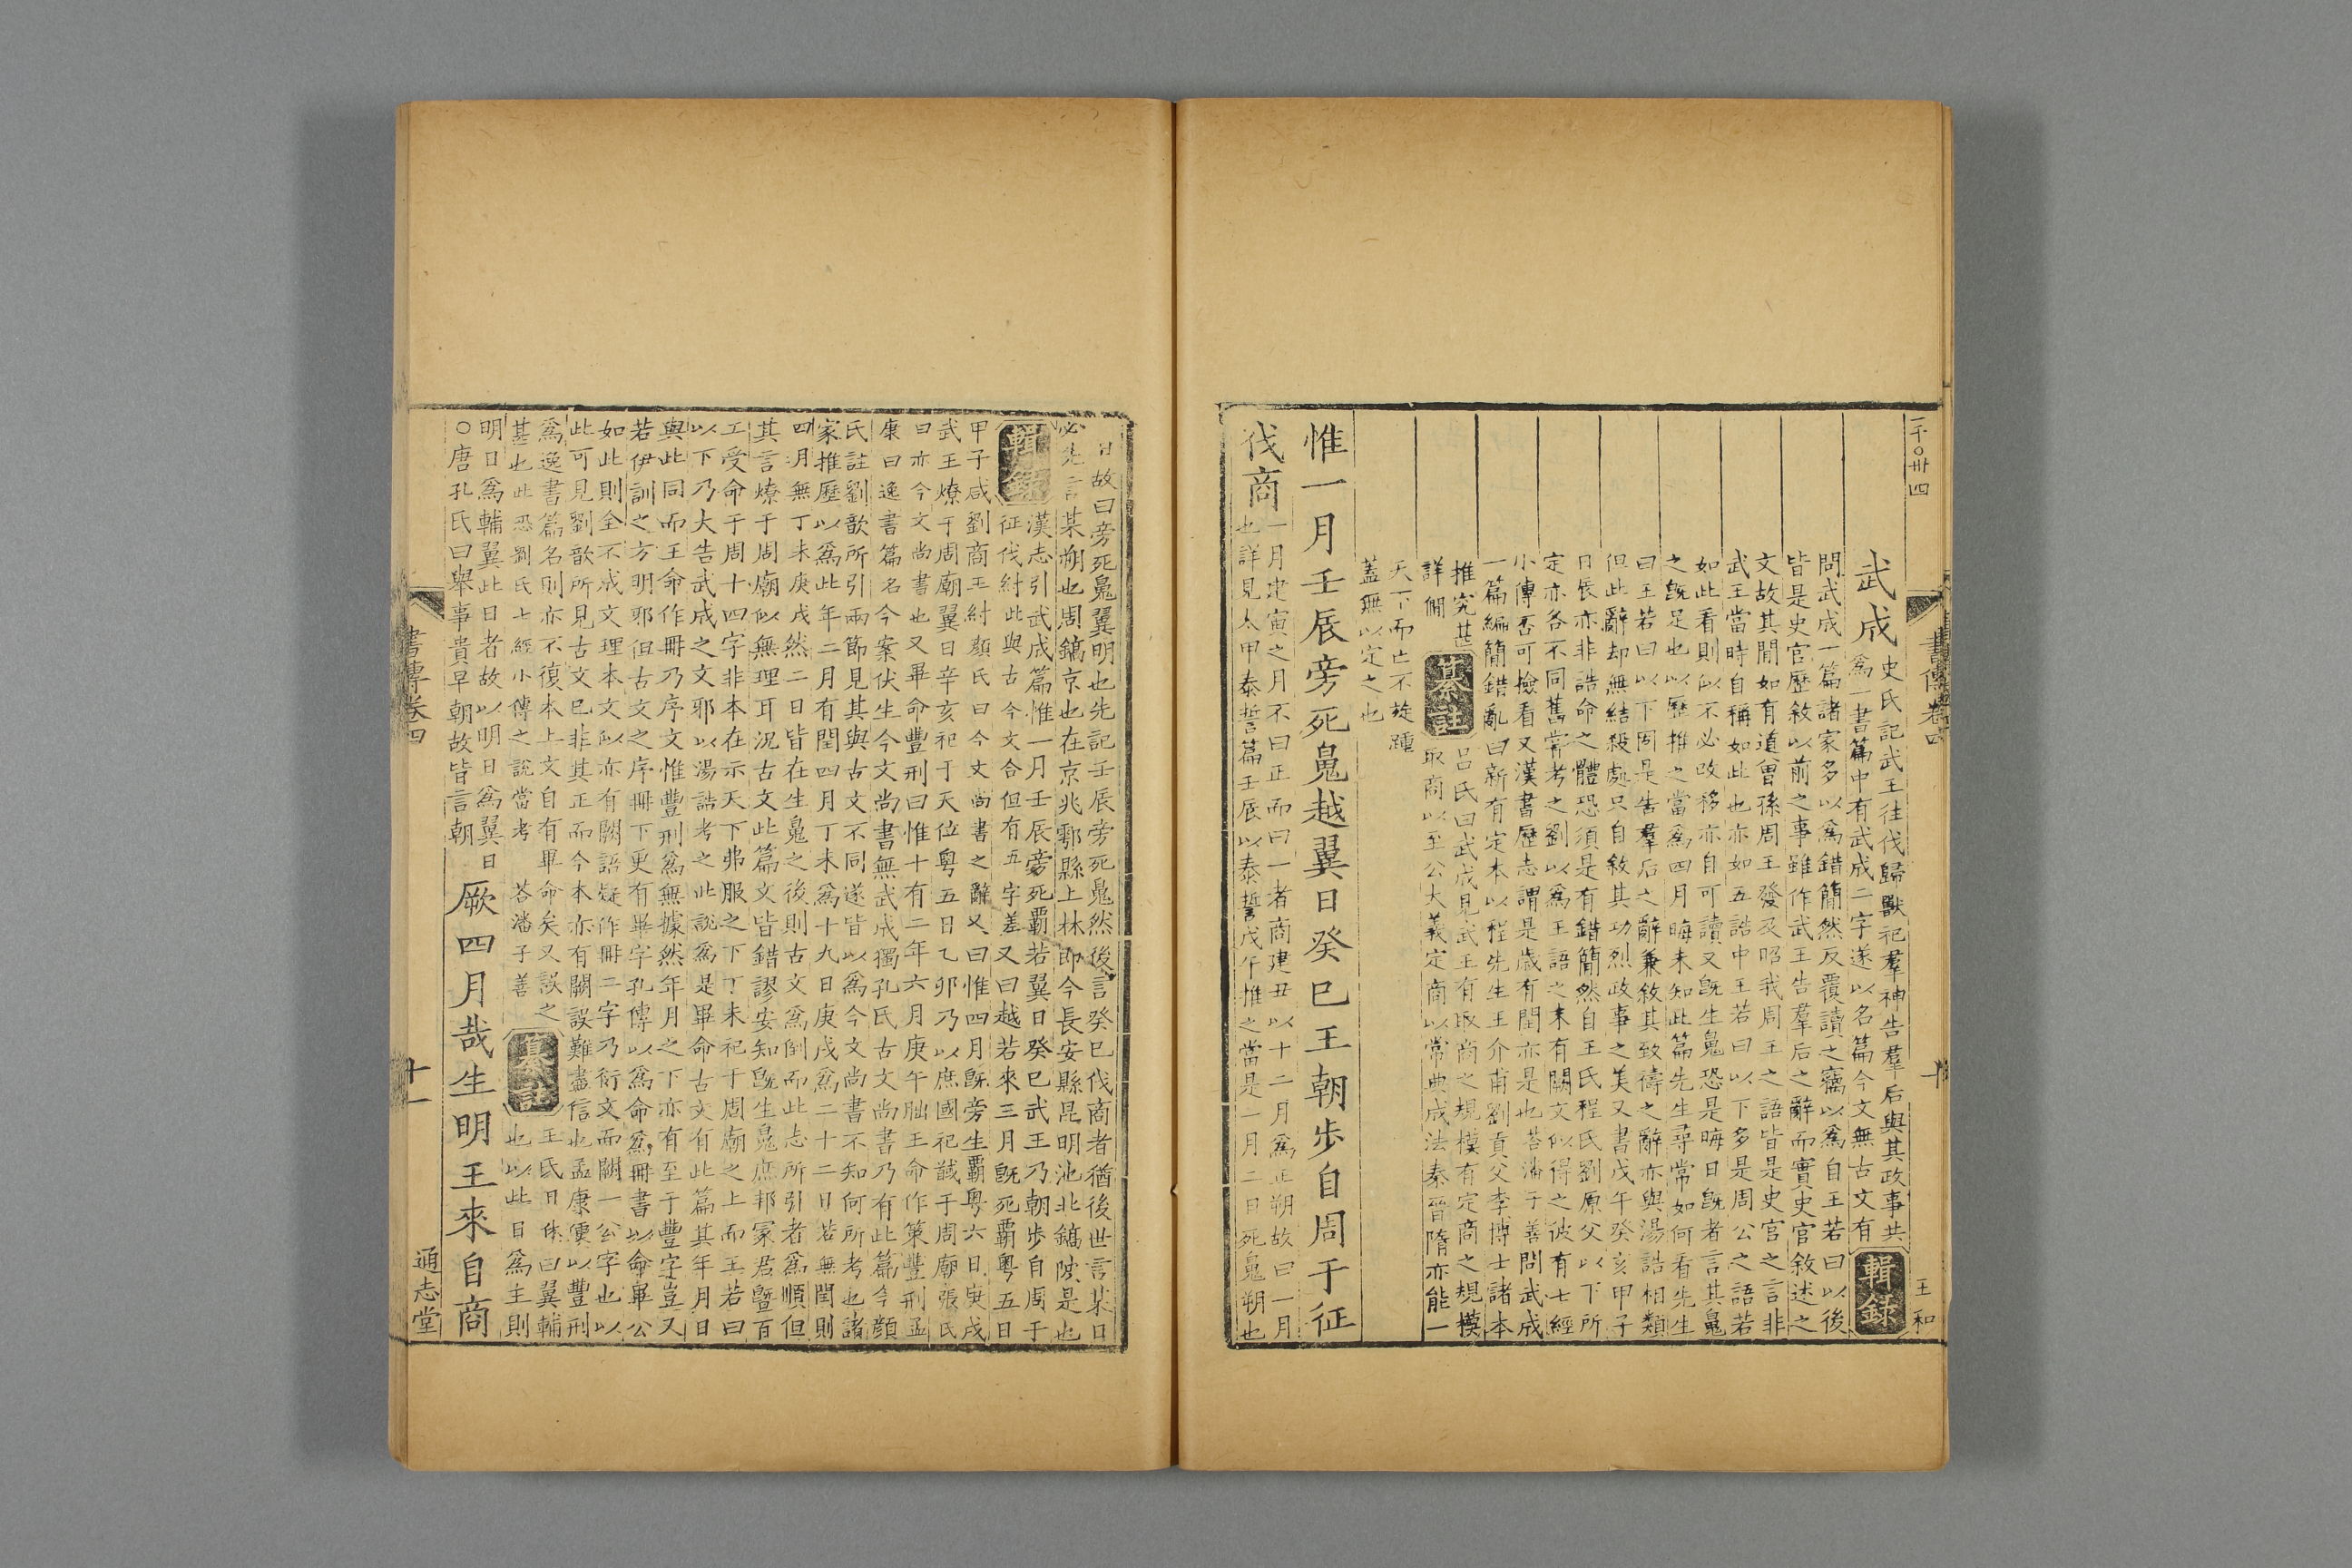 一千〇卅四
書傳卷四
十
王和
武成
史氏記武王往伐歸獸祀羣神告羣后與其政事共
爲一書篇中有武成二字遂以名篇今文無古文有
輯錄
問武成一篇諸家多以爲錯簡然反覆讀之竊以爲自王若曰以後
皆是史官歷敘以前之事雖作武王告羣后之辭而實史官敘述之
文故其閒如有道曾孫周王發及昭我周王之語皆是史官之言非
武王當時自稱如此也亦如五誥中王若曰以下多是周公之語若
如此看則似不必改移亦自可讀又旣生魄恐是晦日旣者言其魄
之旣足也以歷推之當爲四月晦未知此篇先生尋常如何看先生
曰王若曰以下固是告羣后之辭兼敘其致禱之辭亦與湯誥相類
但此辭却無結殺處只自敘其功烈政事之美又書戊午癸亥甲子
日辰亦非誥命之體恐須是有錯簡然自王氏程氏劉原父以下所
定亦各不同舊嘗考之劉以爲王語之末有闕文似得之彼有七經
小傳否可撿看又漢書歷志謂是歲有閏亦是也荅潘子善問武成
一篇編簡錯亂曰新有定本以程先生王介甫劉貢父李博士諸本
推究甚
詳備
纂註
呂氏曰武成見武王有取商之規模有定商之規模
取商以至公大義定商以常典成法秦晉隋亦能一
天下而亡不旋踵
蓋無以定之也
惟一月壬辰旁死魄越翼日癸巳王朝步自周于征
伐商
一月建寅之月不曰正而曰一者商建丑以十二月爲正朔故曰一月
也詳見太甲泰誓篇壬辰以泰誓戊午推之當是一月二日死魄朔也
日故曰旁死魄翼明也先記壬辰旁死魄然後言癸巳伐商者猶後世言某日
必先言某朔也周鎬京也在京兆鄠縣上林即今長安縣昆明池北鎬陂是也
輯錄
漢志引武成篇惟一月壬辰旁死霸若翼日癸巳武王乃朝步自周于
征伐紂此與古今文合但有五字差又曰越若來三月旣死霸粵五日
甲子咸劉商王紂顏氏曰今文尚書之辭又曰惟四月旣旁生霸粵六日庚戌
武王燎于周廟翼日辛亥祀于天位粵五日乙卯乃以庶國祀馘于周廟張氏
曰亦今文尚書也又畢命豐刑曰惟十有二年六月庚午朏王命作策豐刑孟
康曰逸書篇名今案伏生今文尚書無武成獨孔氏古文尚書乃有此篇今顏
氏註劉歆所引兩節見其與古文不同遂皆以爲今文尚書不知何所考也諸
家推歷以爲此年二月有閏四月丁未爲十九日庚戌爲二十二日若無閏則
四月無丁未庚戌然二日皆在生魄之後則古文爲倒而此志所引者爲順但
其言燎于周廟似無理耳況古文此篇文皆錯謬安知旣生魄庶邦冢君曁百
工受命于周十四字非本在示天下弗服之下丁未祀于周廟之上而王若曰
以下乃大告武成之文邪以湯誥考之此說爲是畢命古文有此篇其年月日
與此同而王命作冊乃序文惟豐刑爲無據然年月之下亦有至于豐字豈又
若伊訓之方明邪但古文之序冊下更有畢字孔傳以爲命爲冊書以命畢公
如此則全不成文理本文似亦有闕語疑作冊二字乃衍文而闕一公字也以
此可見劉歆所見古文已非其正而今本亦有闕誤難盡信也孟康便以豐刑
爲逸書篇名則亦不復本上文自有畢命矣又誤之
甚也此恐劉氏七經小傳之說當考 荅潘子善
纂註
王氏日休曰翼輔
也以此日爲主則
明日爲輔翼此日者故以明日爲翼日
○唐孔氏曰舉事貴早朝故皆言朝
厥四月哉生明王來自商
書傳卷四
十一
通志堂